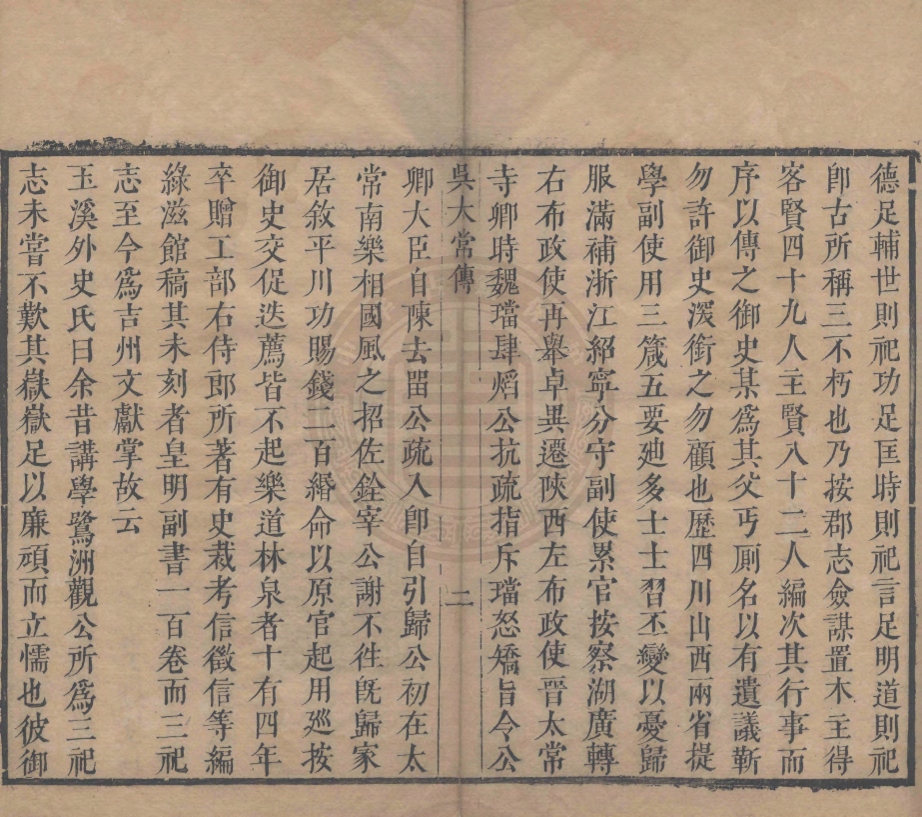 德足輔世則祀功足匡時則祀言足明道則祀
卽古所稱三不朽也乃按郡志僉謀置木主得
客賢四十九人主賢八十二人編次其行事而
序以傳之御史某爲其父丐厠名以有遺議靳
勿許御史深銜之勿顧也歷四川山西兩省提
學副使用三箴五要廸多士士習丕變以憂歸
服滿補浙江紹寧分守副使累官按察湖廣轉
右布政使再舉卓異遷陜西左布政使晉太常
寺卿時魏璫肆熖公抗疏指斥璫怒矯旨令公
吳大常傳 二
卿大臣自陳去畱公疏入卽自引歸公初在太
常南樂相國風之招佐銓宰公謝不徃旣歸家
居敘平川功賜錢二百緡命以原官起用廵按
御史交促迭薦皆不起樂道林泉者十有四年
卒贈工部右侍郎所著有史裁考信徵信等編
綠滋館稿其未刻者皇明副書一百卷而三祀
志至今爲吉州文獻掌故云
玉溪外史氏曰余昔講學鷺洲觀公所爲三祀
志未嘗不歎其嶽嶽足以廉頑而立懦也彼御